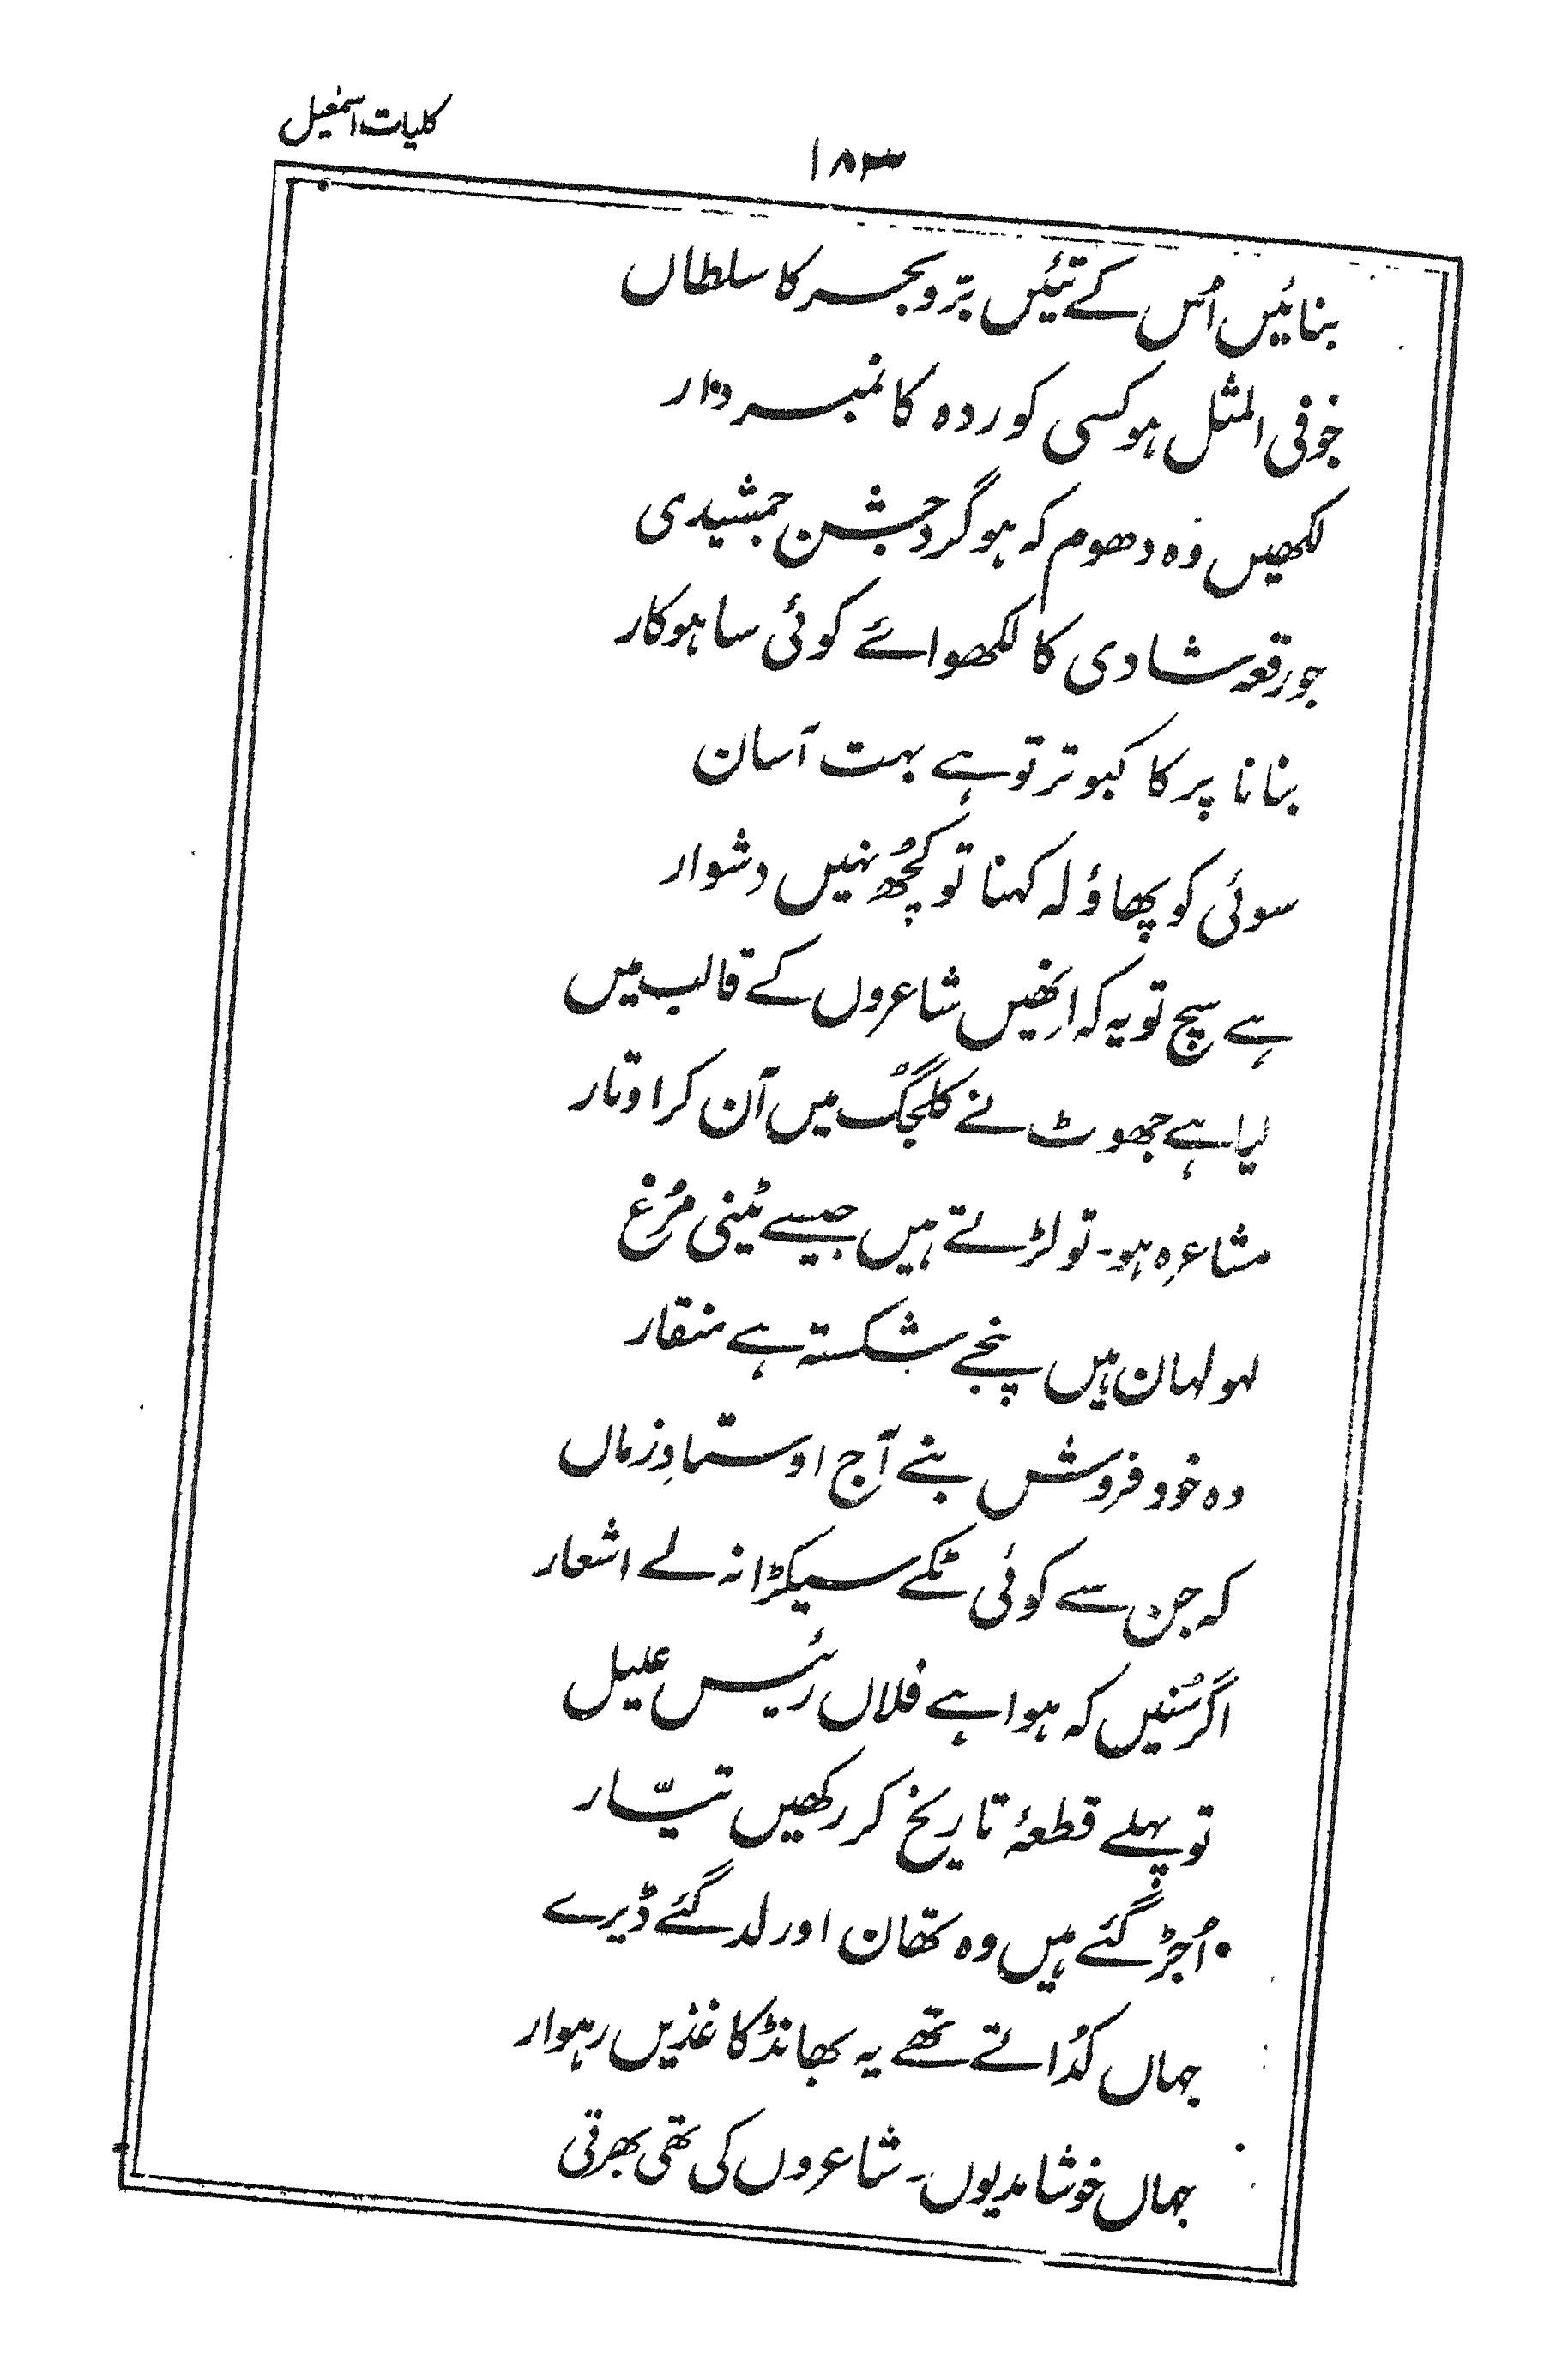 کلیات اسمٰعیل
۱۸۳
بنائیں اُس کے تئیں برّ و بحر کا سلطاں
جو فی المثل ہو کسی کوردہ کا نمبردار
لکھیں وہ دھوم کہ ہو گرد جشن جمشیدی
جو رقعہ شادی کا لکھوائے کوئی ساہوکار
بنانا پر کا کبوتر تو ہے بہت آسان
سوئی کو پھاؤلہ کہنا تو کُچھ نہیں دشوار
ہے سچ تو یہ کہ انھیں شاعروں کے قالب میں
لیا ہے جھوٹ نے کلجُگ میں آن کر اوتار
مشاعرہ ہو۔ تو لڑتے ہیں جیسے ٹینی مُرغ
لہو لہان ہیں پنجے شکستہ ہے منقار
وہ خود فروش بنے آج اوستادِ زماں
کہ جن سے کوئی ٹکے سیکڑا نہ لے اشعار
اگر سُنیں کہ ہوا ہے فلاں رئیس علیل
تو پہلے قطعۂ تاریخ کر رکھیں تیّار
اُجڑ گئے ہیں وہ تھان اور لد گئے ڈیرے
جہاں کُداتے تھے یہ بھانڈ کاغذیں رہوار
جہاں خوشامدیوں۔ شاعروں کی تھی بھرتی